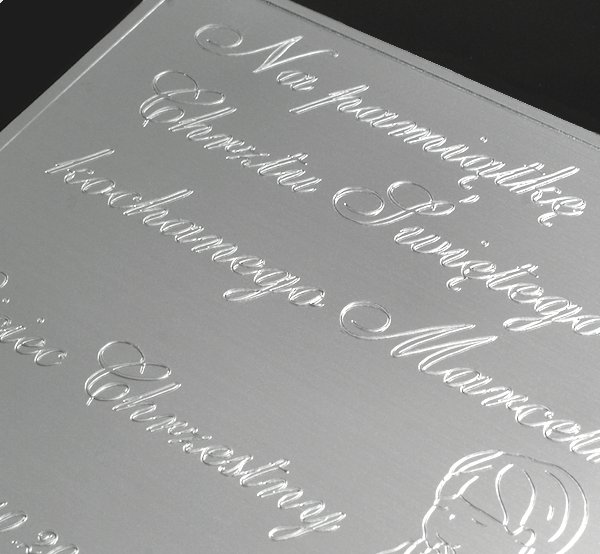 Na pamiątkę
Chrztu Świętego
kochanego Marcel
Chrzestny